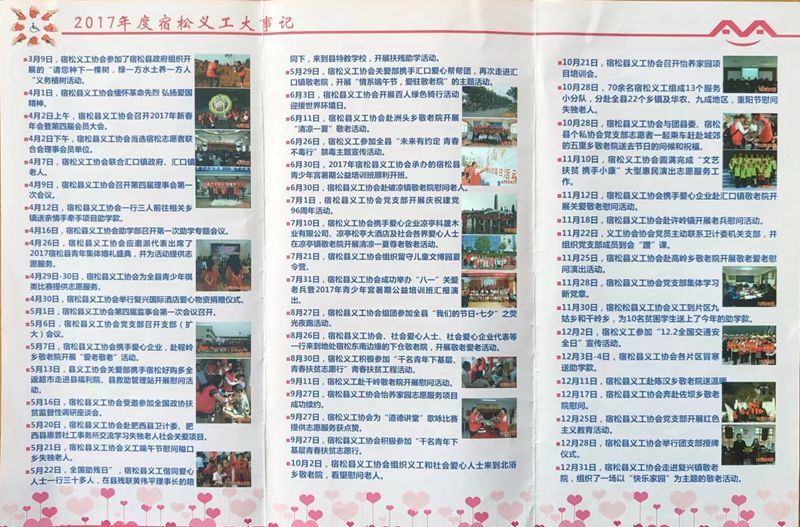 2017年度宿松义工大事记
3月9日，宿松义工协会参加了宿松县政府组织开
展的“请您种下一棵树，绿一方水土养一方人
”义务植树活动。
4月1日，宿松县义工协会缅怀革命先烈 弘扬爱国
精神。
4月2日上午，宿松县义工协会召开2017年新春
年会暨第四届会员大会。
4月2日下午，宿松县义工协会当选宿松志愿者联
合会理事会员单位。
4月7日，宿松义工协会联合汇口镇政府、汇口镇
老人。
4月9日，宿松县义工协会召开第四届理事会第一
次会议。
4月12日，宿松县义工协会一行三人前往相关乡
镇送亲情手牵手项目助学款。
4月16日，宿松义工协会助学部召开第一次助学专题会议。
4月26日，宿松县义工协会应邀派代表出席了
2017宿松县青年集体婚礼盛典，并为活动提供志
愿服务。
4月29日-30日，宿松义工协会为全县青少年棋
类比赛提供志愿服务。
4月30日，宿松县义工协会举行复兴国际酒店爱心物资捐赠仪式。
5月1日，宿松县义工协会第四届监事会第一次会议召开。
5月6日，宿松县义工协会党支部召开支部（扩
大）会议。
5月7日，宿松县义工协会携手爱心企业，赴程岭
乡敬老院开展“爱老敬老”活动。
5月13日，县义工协会关爱部携手宿松好购多全
返超市走进县福利院、县救助管理站开展慰问活
动。
5月16日，宿松县义工协会受邀参加全国政协扶
贫监督性调研座谈会。
5月20日，宿松县义工协会赴肥西县卫计委、肥
西县惠普社工事务所交流学习失独老人社会关爱项目。
5月21日，宿松县义工协会义工端午节慰问陵口
乡失独老人。
5月22日，全国助残日”，宿松县义工借同爱心
人士一行三十多人，在县残联黄伟平理事长的陪
同下，来到县特教学校，开展扶残助学活动。
5月29日，宿松义工协会关爱部携手汇口爱心帮帮团，再次走进汇
口镇敬老院，开展“情系端午节，爱驻敬老院”的主题活动。
6月3日，宿松县义工协会开展百人绿色骑行活动
迎接世界环境日。
6月11日，宿松县义工协会赴洲头乡敬老院开展
“清凉一夏”敬老活动。
6月26日，宿松义工参加全县“未来有约定 青春
不毒行”禁毒主题宣传活动。
6月30日，2017年宿松县义工协会承办的宿松县
青少年宫暑期公益培训班顺利开班。
6月30日，宿松县义工协会赴破凉镇敬老院慰问老人。
7月1日，宿松县义工协会党支部开展庆祝建党
96周年活动。
7月10日，宿松县义工协会携手爱心企业凉亭科晟木
业有限公司、凉亭松亭大酒店及社会各界爱心人士
在凉亭镇敬老院开展清凉一夏尊老敬老活动。
7月21日，宿松县义工协会组织留守儿童文博园夏
令营。
7月31日，宿松县义工协会成功举办“八一”关爱
老兵暨2017年青少年宫暑期公益培训班汇报演
出。
8月27日，宿松县义工协会组团参加全县“我们的节日·七夕”之荧
光夜跑活动。
8月26日，宿松县义工协会、社会爱心人士、社会爱心企业代表等
一行来到地处宿松东南边缘的下仓敬老院，开展敬老爱老活动。
8月30日，宿松义工积极参加“千名青年下基层、
青春扶贫志愿行”青春扶贫工程活动。
9月11日，宿松义工赴千岭敬老院开展慰问活动。
9月27日，宿松县义工协会怡养家园志愿服务项目
成功续约。
9月27日，宿松县义工协会为“道德讲堂”歌咏比赛
提供志愿服务获点赞。
9月27日，宿松县义工协会积极参加“千名青年下
基层青春扶贫志愿行。
10月2日，宿松县义工协会组织义工和社会爱心人士来到北浴
乡敬老院，看望慰问老人。
10月21日，宿松县义工协会召开怡养家园项
目培训会。
10月28日，70余名宿松义工组成13个服务
小分队，分赴全县22个乡镇及华农、九成地区，重阳节慰问
失独老人。
10月28日，宿松县义工协会与团县委、宿松
县个私协会党支部志愿者一起乘车赶赴城郊
的五里乡敬老院送去节日的问候和祝福。
11月10日，宿松县义工协会圆满完成“文艺
扶贫 携手小康”大型惠民演出志愿服务工
作。
11月12日，宿松县义工协会携手爱心企业赴汇口镇敬老院开
展关爱敬老慰问活动。
11月18日，宿松县义工协会赴许岭镇开展老兵慰问活动。
11月22日，义工协会协会党员主动联系卫计委机关支部，并
组织党支部成员到会“蹭”课。
11月25日，宿松县义工协会赴高岭乡敬老院开展敬老爱老慰
问演出活动。
11月28日，宿松县义工协会党支部集体学习
新党章。
11月30日，宿松县义工协会义工到片区九
姑乡和千岭乡，为10名贫困学生送上了今年的助学款。
12月2日，宿松县义工参加“12.2全国交通安
全日”宣传活动。
12月3日-4日，宿松县义工协会各片区冒寒
送助学款。
12月11日，宿松义工赴陈汉乡敬老院送温暖。
12月17日，宿松县义工协会奔赴佐坝乡敬老
院慰问。
12月25日，宿松县义工协会党支部开展红色
主义教育活动。
12月28日，宿松县义工协会举行团支部授牌
仪式。
12月31日，宿松县义工协会走进复兴镇敬老
院，组织了一场以“快乐家园”为主题的敬老活动。